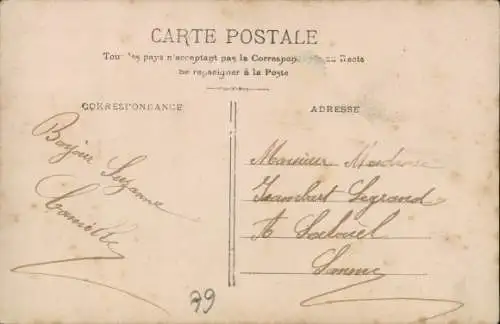 CARTE POSTALE
Tous les pays n'acceptant pas la Correspon au Recto
se renseigner à la Poste
CORRESPONDANCE
ADRESSE
Bonjour Suzanne
Camille
Monsieur Madame
Isambert Legrand
A
Somme
79